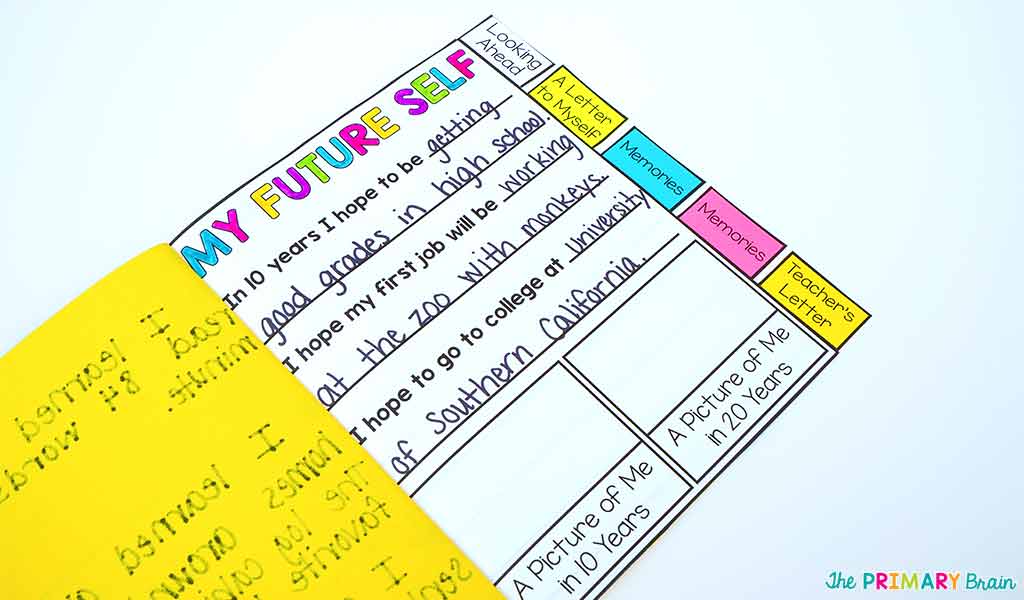 Looking
Ahead
A Letter
to Myself
Memories
Memories
Teacher's
Letter
MY FUTURE SELF
In 10 years I hope to be getting
good grades in high school
I hope my first job will be working
at the zoo with monkeys.
I hope to go to college at University
of Southern California.
A Picture of Me
in 10 Years
A Picture of Me
in 20 Years
I learned
read 84 words
minute.
I learned
favorite
I
The PRIMARY Brain